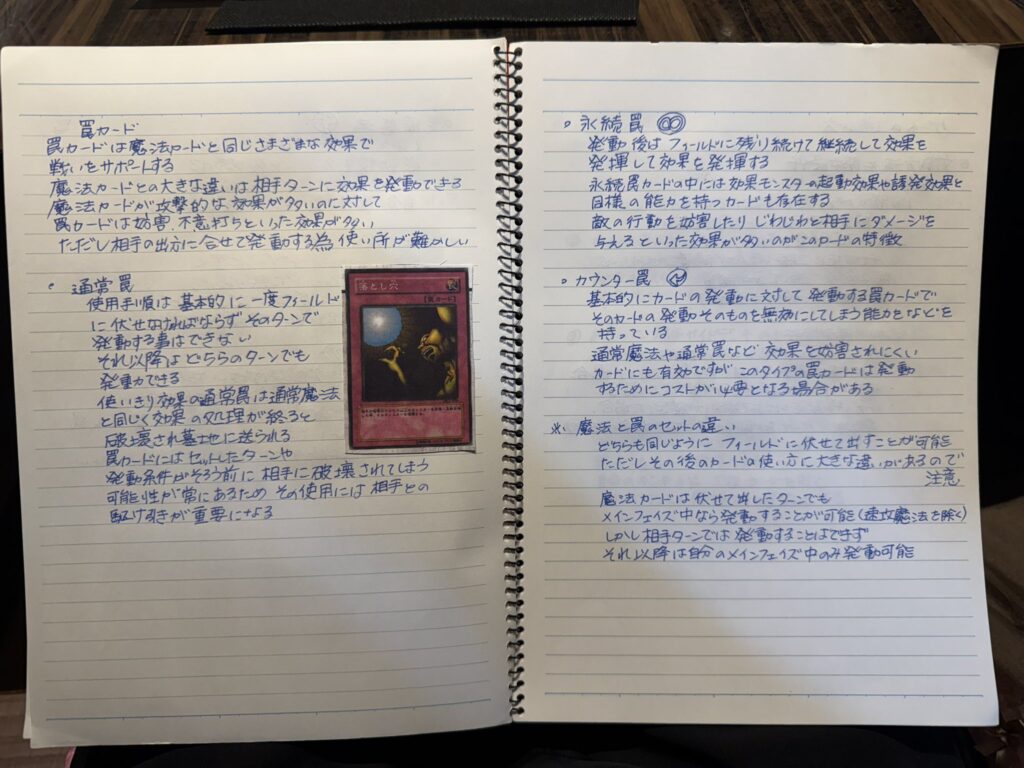 罠カード
罠カードは魔法カードと同じさまざまな効果で
戦いをサポートする
魔法カードとの大きな違いは相手ターンに効果を発動できる
魔法カードが攻撃的な効果が多いのに対して
罠カードは妨害、不意打ちといった効果が多い
ただし相手の出方に合せて発動する為使い所が難かしい
。通常罠
使用手順は基本的に一度フィールド
に伏せなければならずそのターンで
発動する事はできない
それ以降はどちらのターンでも
発動できる
使いきり効果の通常罠は通常魔法
と同じく効果の処理が終ると
破壊され墓地に送られる
罠カードにはセットしたターンや
発動条件がそろう前に相手に破壊されてしまう
可能性が常にあるためその使用には相手との
駆け引きが重要になる
落とし穴
[罠カード]
。永続罠 ∞
発動後はフィールドに残り続けて継続して効果を
発揮して効果を発揮する
永続罠カードの中には効果モンスターの起動効果や誘発効果と
同様の能力を持つカードも存在する
敵の行動を妨害したりじわじわと相手にダメージを
与えるといった効果が多いのがこのカードの特徴
。カウンター罠
基本的にカードの発動に対して発動する罠カードで
そのカードの発動そのものを無効にしてしまう能力をなどを
持っている
通常魔法や通常罠など効果を妨害されにくい
カードにも有効ですがこのタイプの罠カードは発動
するためにコストが必要となる場合がある
※ 魔法と罠のセットの違い
どちらも同じようにフィールドに伏せて出すことが可能
ただしその後のカードの使い方に大きな違いがあるので
注意
魔法カードは伏せて出したターンでも
メインフェイズ中なら発動することが可能(速攻魔法を除く)
しかし相手ターンでは発動することはできず
それ以降は自分のメインフェイズ中のみ発動可能